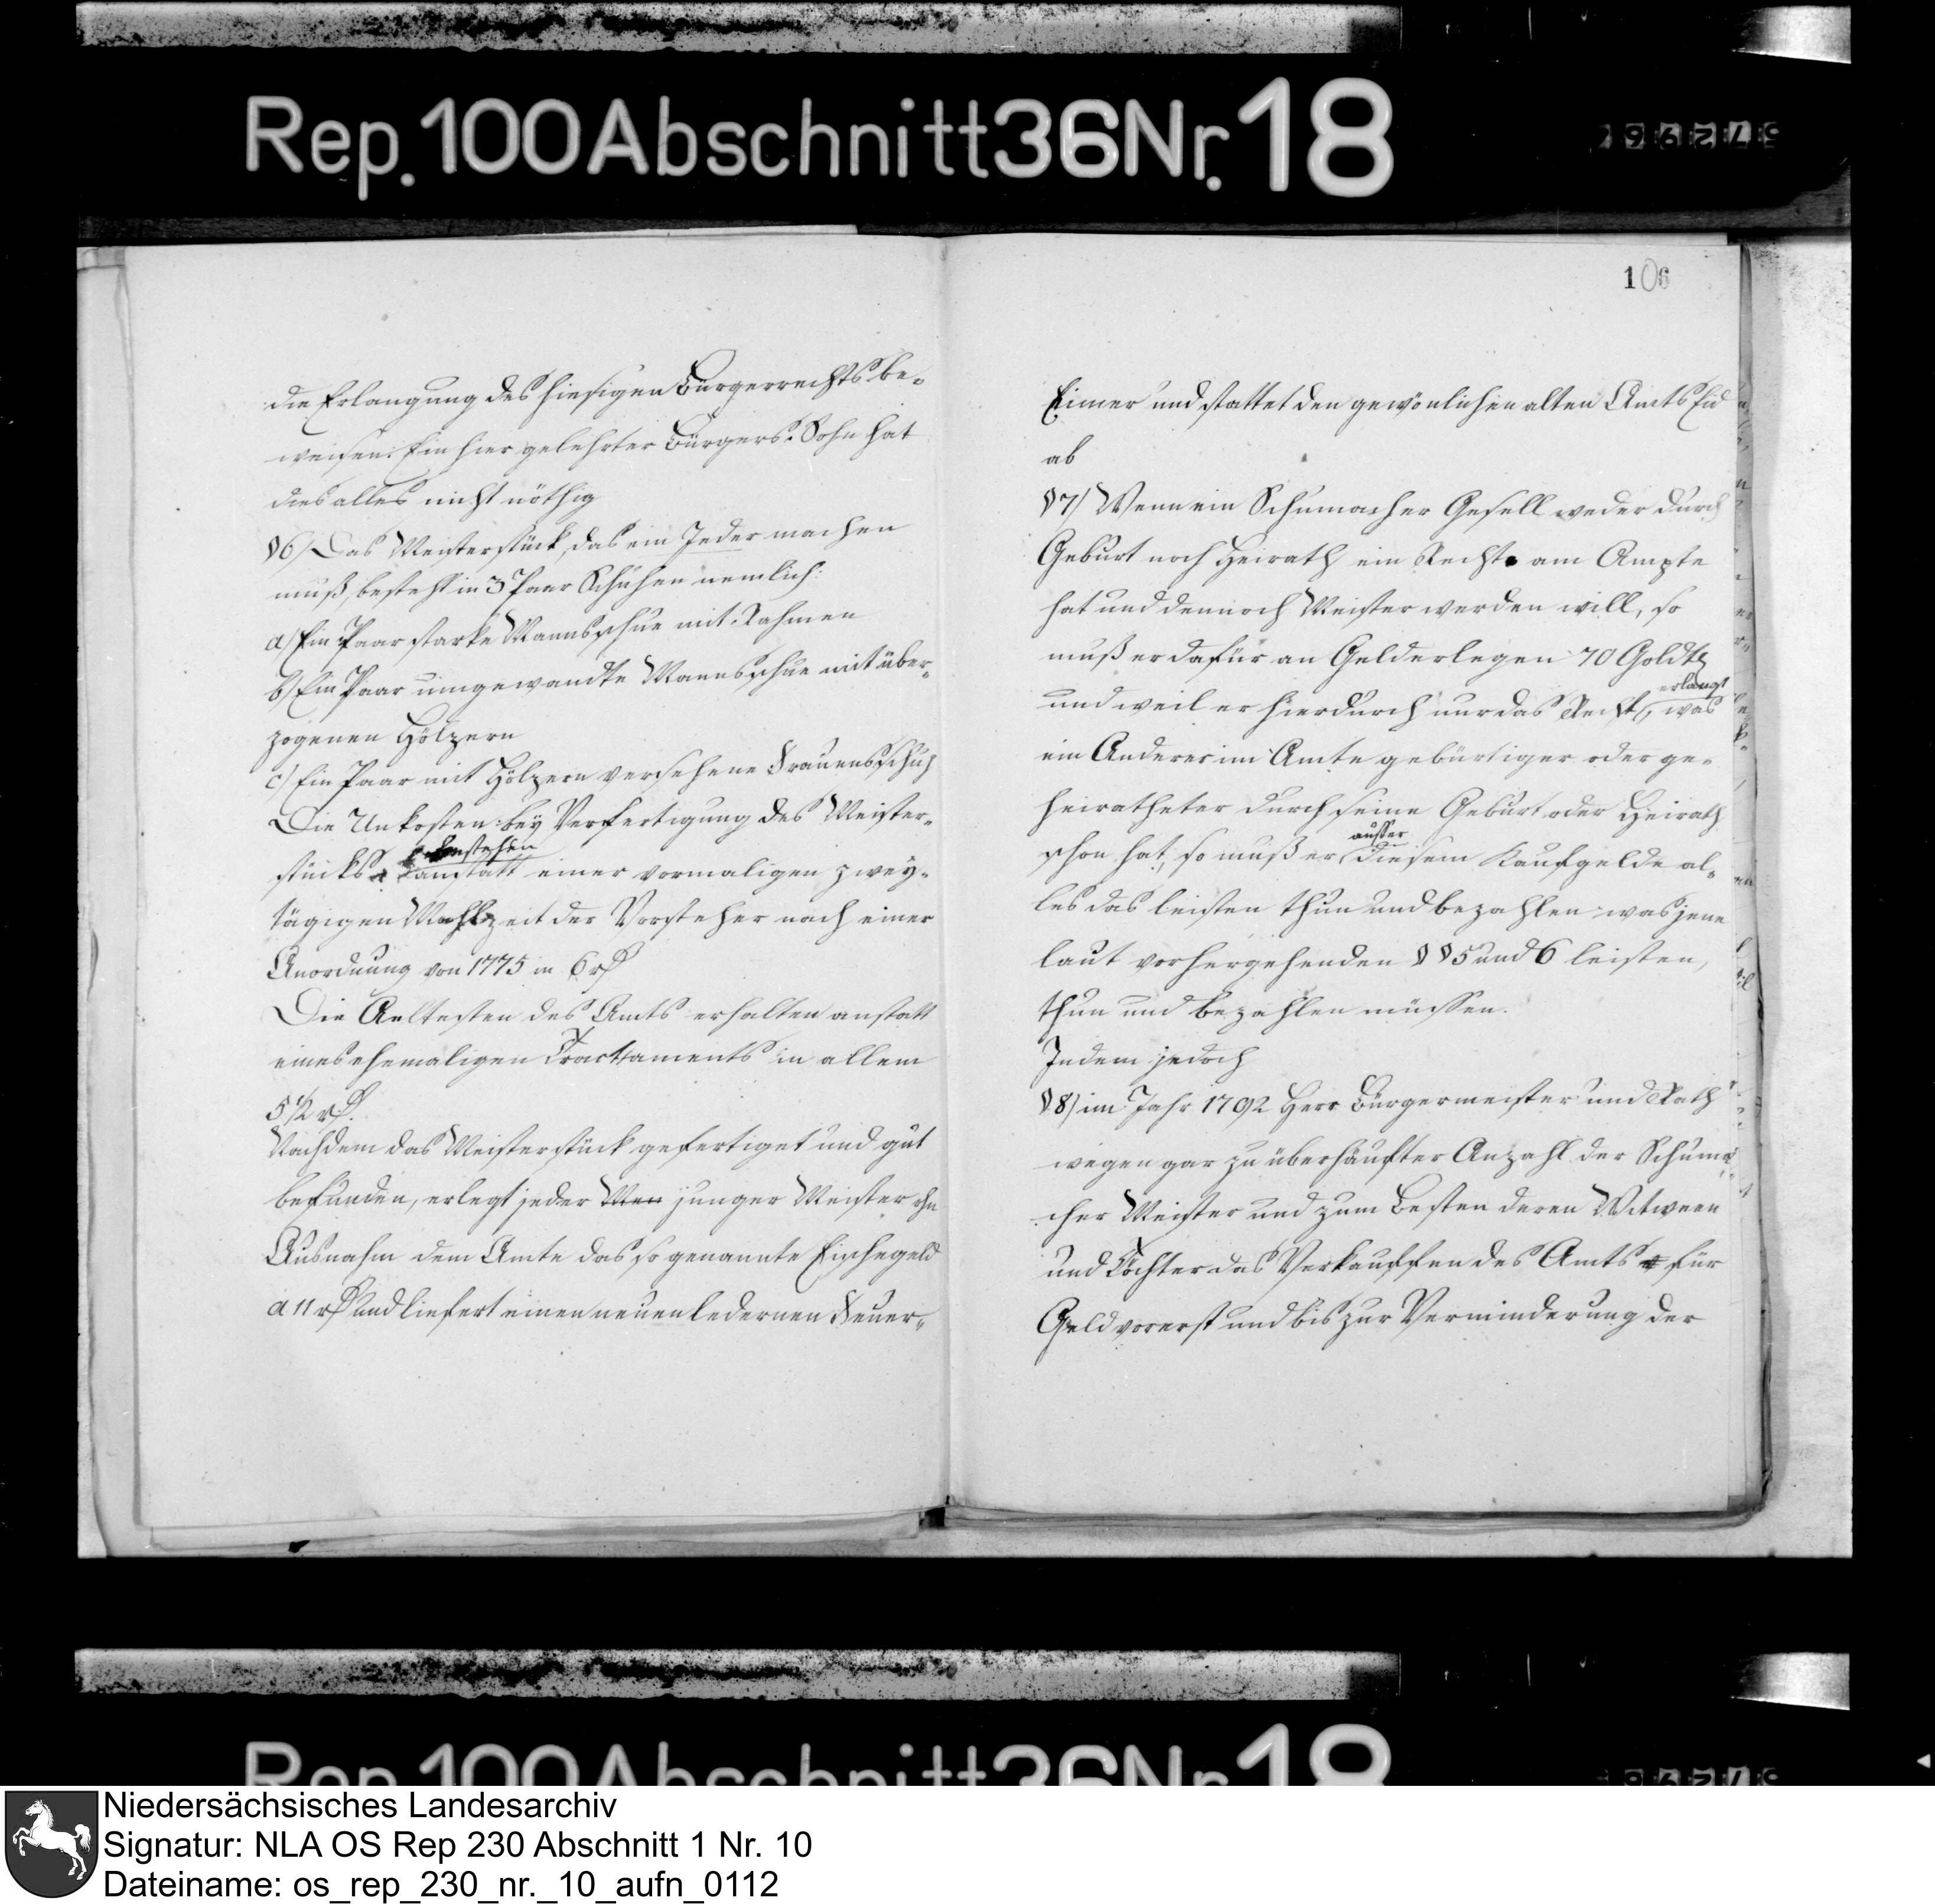 Rep. 100 Abschnitt 36 Nr. 18
die Erlangung des hiesigen Bürgerrechts be-
weisen. Ein hier gelehrter Bürgers-Sohn hat
dies alles nicht nöthig
§ 6) Das Meisterstück, das ein Jeder machen
muß, besteht in 3 Paar Schuhen nemlich:
a) Ein Paar starke Mannsschue mit Rahmen
b) Ein Paar umgewandte Mannsschue mit über-
zogenen Hölzern
c) Ein Paar mit Hölzern versehene Frauensschuh
Die Unkosten bey Verfertigung des Meister-
stücks bestehen anstatt einer vormaligen zwey-
tägigen Mahlzeit der Vorsteher nach einer
Anordnung von 1775 in 6 rth
Die Aeltesten des Amts erhalten anstatt
eines ehemaligen Tractaments in allem
5 1/2 rth.
Nachdem das Meisterstück gefertiget und gut
befunden, erlegt jeder junger Meister ohn
Ausnahm dem Amte das so genannte Eischegeld
a 11 rth und liefert einen neuen ledernen Feuer-
106
Eimer und stattet den gewönlichen alten Amts Eid
ab
§ 7) Wenn ein Schumacher Gesell weder durch
Geburt noch Heirath ein Recht am Ampte
hat und dennoch Meister werden will, so
muß er dafür an Geld erlegen 70 Goldfl
und weil er hierdurch nur das Recht erlangt, was
ein Anderer im Amte gebürtiger oder ge-
heiratheter durch seine Geburt oder Heirath
schon hat, so muß er ausser diesem Kaufgelde al-
les das leisten thun und bezahlen was jene
laut vorhergehenden § § 5 und 6 leisten,
thun und bezahlen müssen.
Indem jedoch
§ 8) im Jahr 1792 Herr Bürgermeister und Rath
wegen gar zu überhäufter Anzahl der Schuma-
cher Meister und zum Besten deren Witween
und Töchter das Verkauffen des Amts für
Geld vorerst und bis zur Verminderung der
Niedersächsisches Landesarchiv
Signatur: NLA OS Rep 230 Abschnitt 1 Nr. 10
Dateiname: os_rep_230_nr._10_aufn_0112